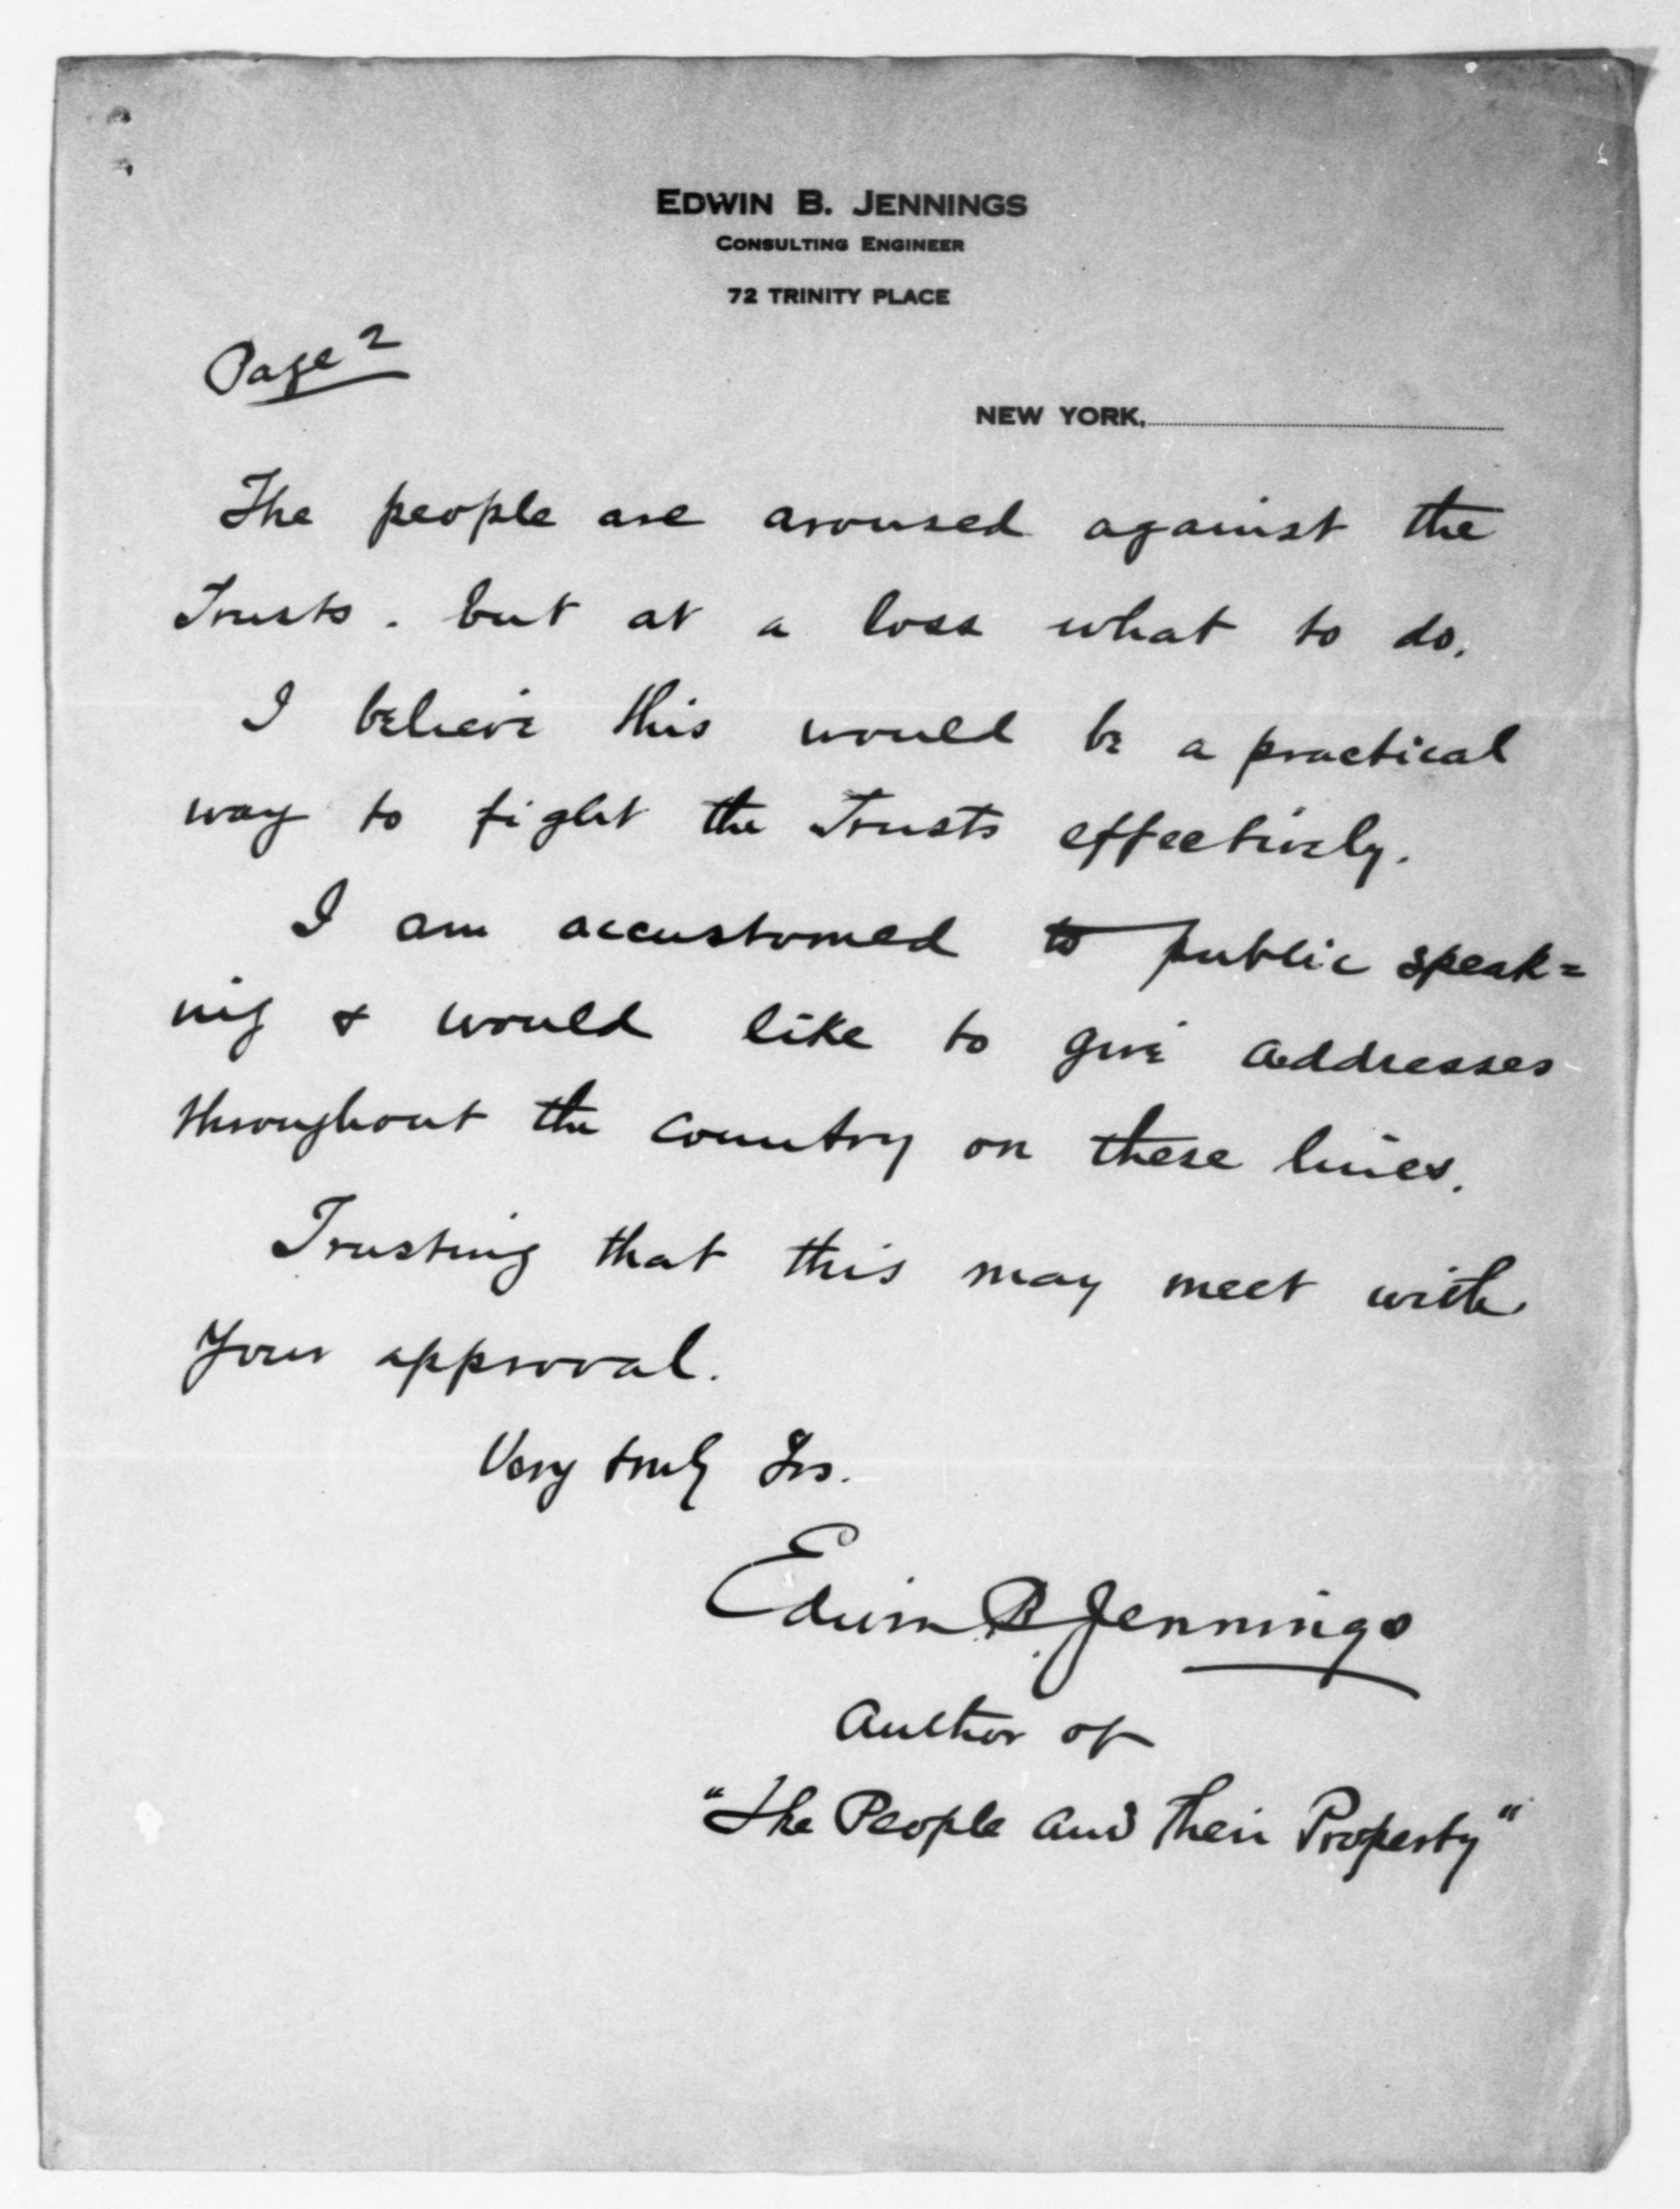 EDWIN B. JENNINGS
CONSULTING ENGINEER
72 TRINITY PLACE
Page 2
NEW YORK,
The people are aroused against the
Trusts. but at a loss what to do.
I believe this would be a practical
way to fight the Trusts effectively.
I am accustomed to public speak=
ing & would like to give addresses
throughout the country on these lines.
Trusting that this may meet with
your approval.
Very truly Yrs.
Edwin B. Jennings
Author of
"The People and Their Property"